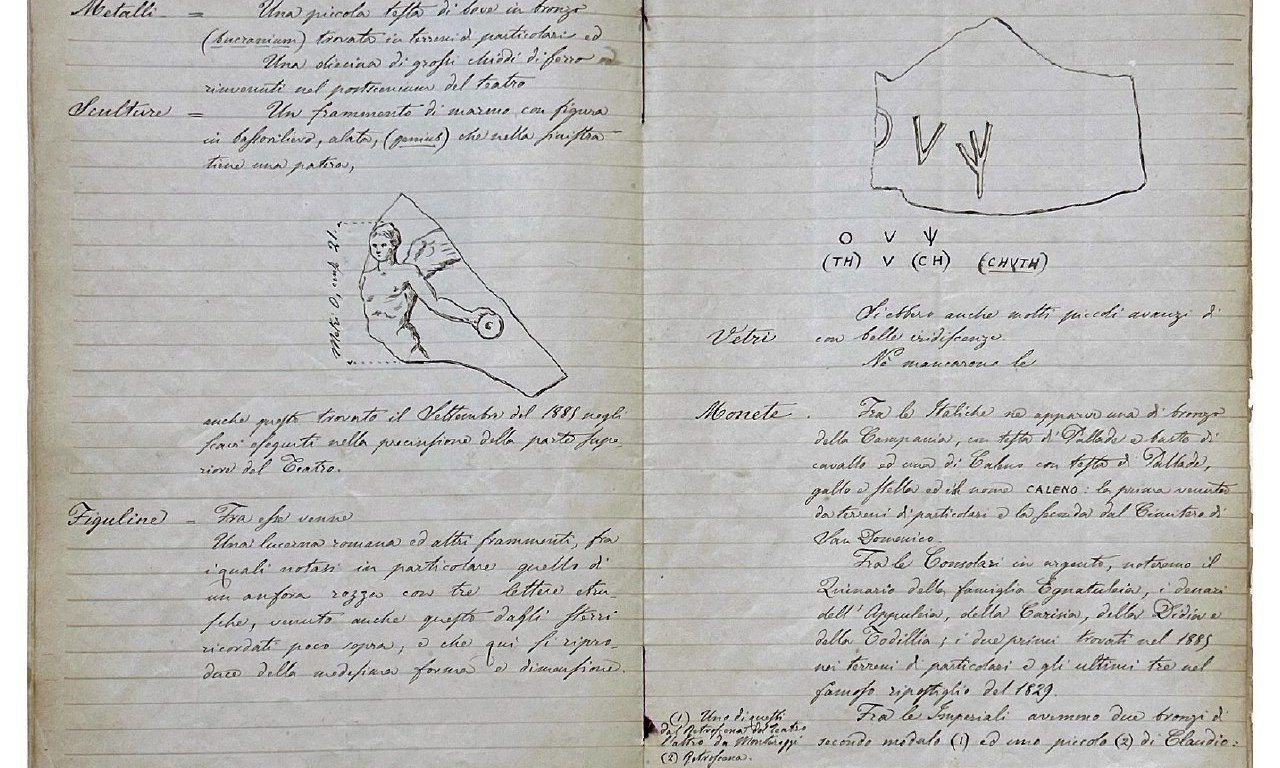 Metalli = Una piccola testa di bove in bronzo
(bucranium) trovata in terreni di particolari ed
Una diecina di grossi chiodi di ferro
rinvenuti nel postscenium del teatro
Sculture = Un frammento di marmo con figura
in bassorilievo, alata, (genius) che nella sinistra
tiene una patera,
anche questo trovato il Settembre del 1885 negli
scavi eseguiti nella precinzione della parte supe-
riore del Teatro.
Figuline = Fra esse venne
Una lucerna romana ed altri frammenti, fra
i quali notasi in particolare quello di
un anfora rozza con tre lettere etru-
sche, venuto anche questo dagli sterri
ricordati poco sopra, e che qui si ripro-
duce della medesima forma e dimensione.
O V Ψ
(TH) V (CH) (CHVTH)
Si ebbero anche molti piccoli avanzi di
Vetri con belle iridiscenze.
Nè mancarono le
Monete. Fra le Italiche ne apparve una di bronzo
della Campania, con testa di Pallade e busto di
cavallo ed una di Caleno con testa di Pallade,
gallo e stella ed il nome CALENO: la prima venuta
da terreni di particolari e la seconda dal
San Domenico.
Fra le Consolari in argento, noteremo il
Quinario della famiglia Egnatuleia, i denari
dell'Appuleia, della Carisia, della Didia e
della ; i due primi trovati nel 1885
nei terreni di particolari e gli ultimi tre nel
famoso ripostiglio del 1829.
Fra le Imperiali avemmo due bronzi di
secondo modulo (1) ed uno piccolo (2) di Claudio:
(1) Uno di questi
dal Retroscena del teatro
l'altro da
(2) Retroscena.